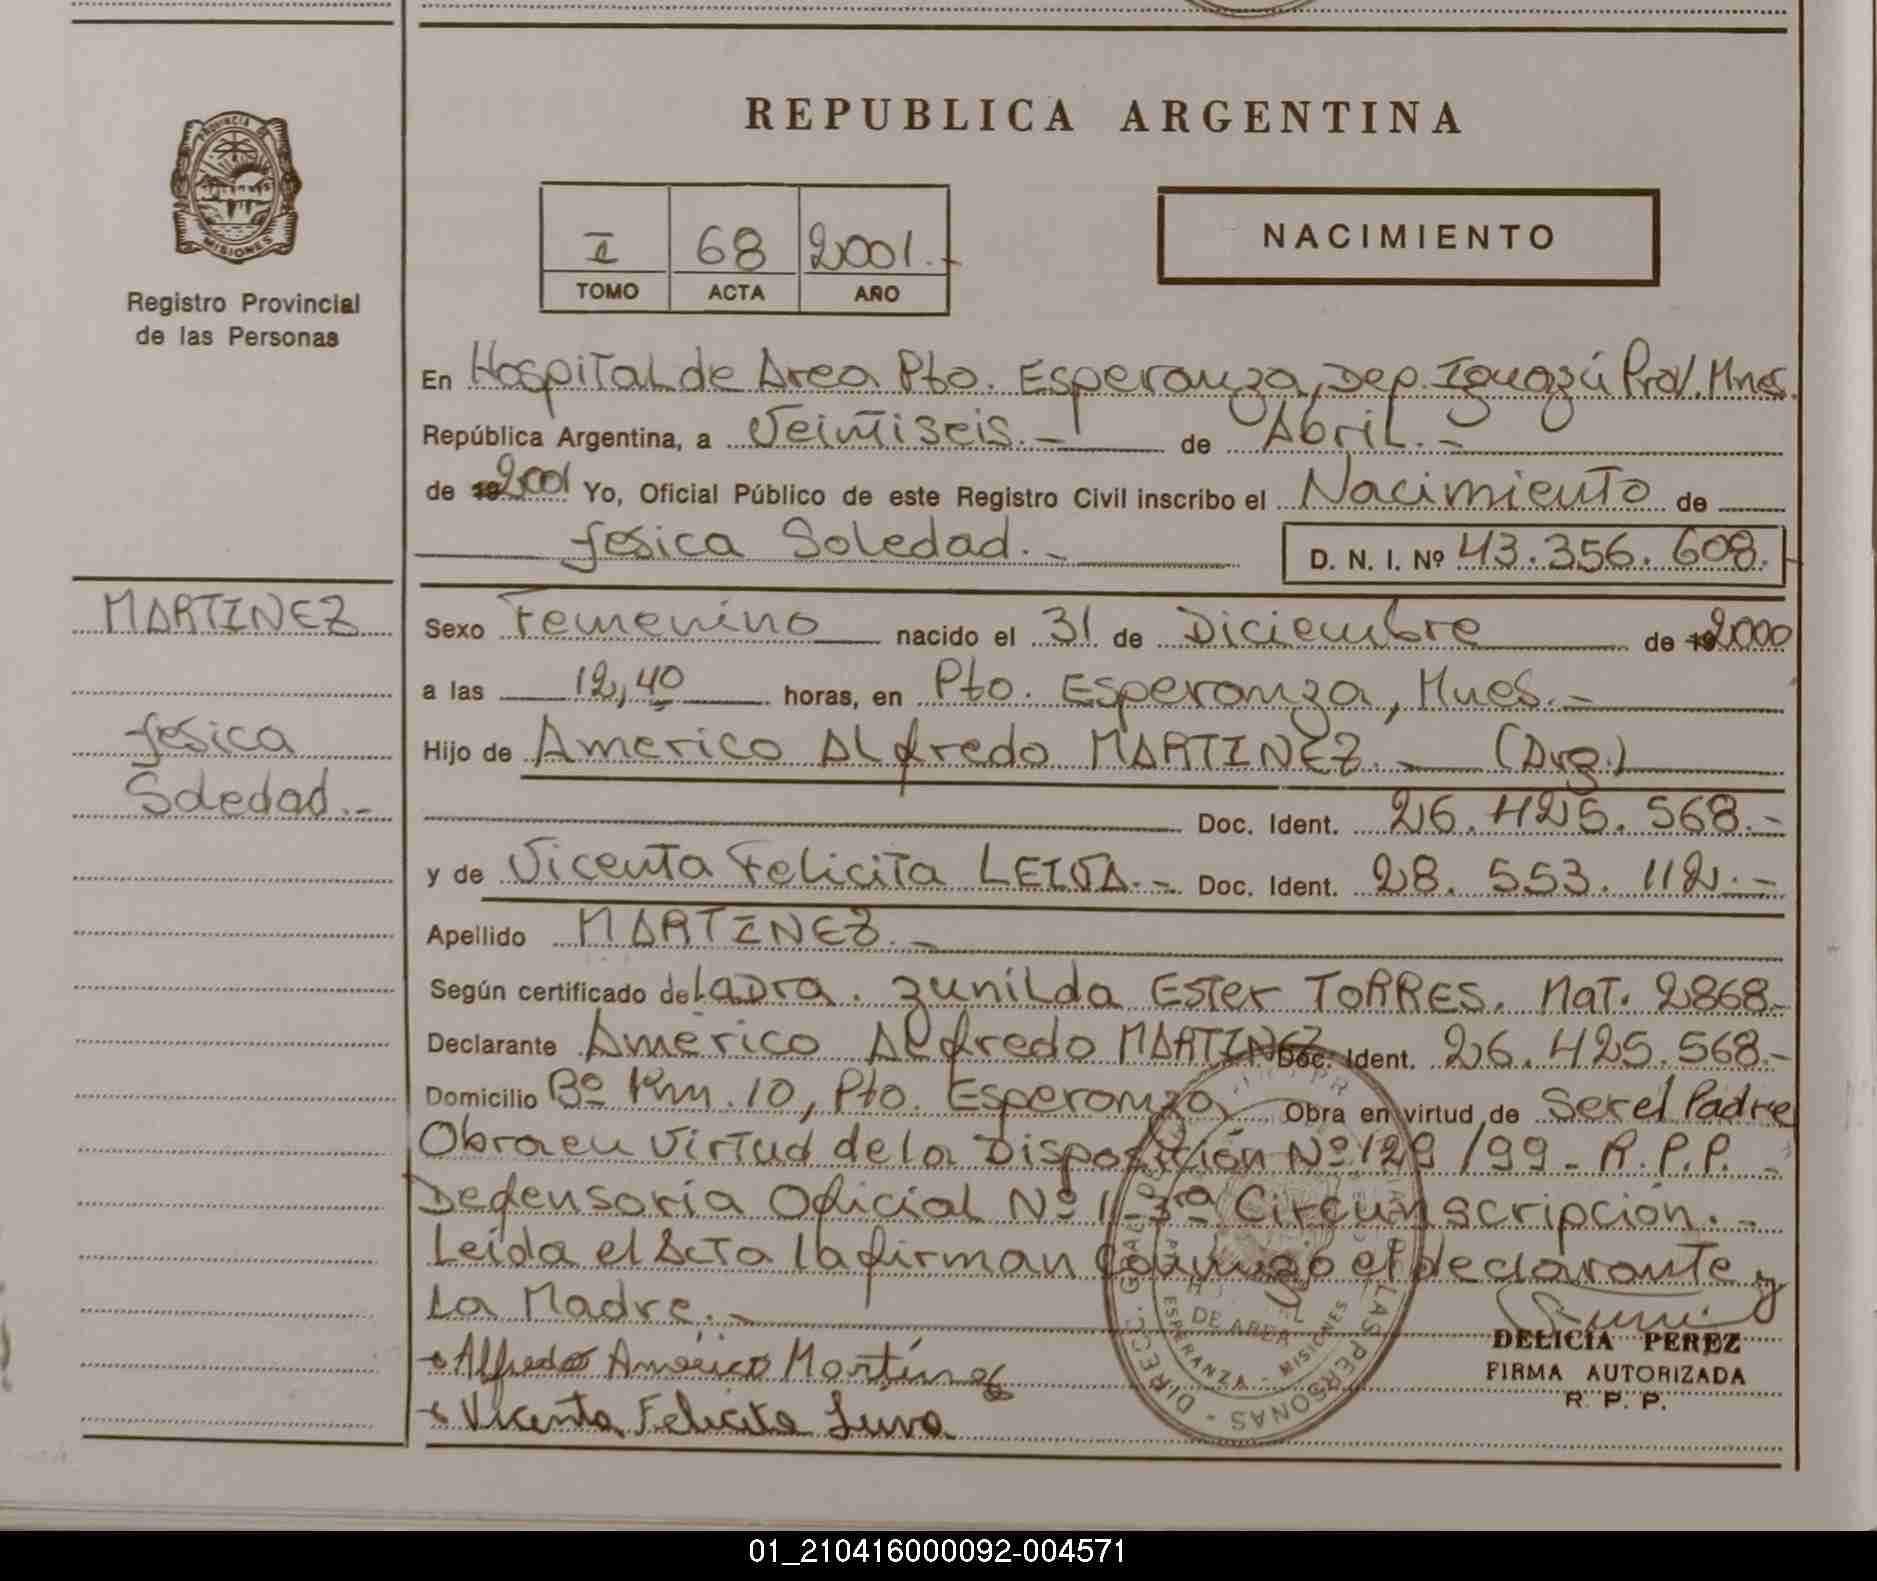 REPUBLICA ARGENTINA
PROVINCIA DE
MISIONES
Registro Provincial
de las Personas
I 68 2001.-
TOMO ACTA AÑO
NACIMIENTO
En Hospital de Area Pto. Esperanza, Dep. Iguazú Prov. Mnes.
República Argentina, a Veintiseis.- de Abril.-
de 192001 Yo, Oficial Público de este Registro Civil inscribo el Nacimiento de
Jesica Soledad.-
D. N. I. Nº 43.356.608.-
MARTINEZ
Jesica
Soledad.-
Sexo Femenino nacido el 31 de Diciembre de 192000
a las 12,40 horas, en Pto. Esperanza, Mnes.-
Hijo de Americo Alfredo MARTINEZ.- (Arg.)
Doc. Ident. 26.425.568.-
y de Vicenta Felicita LEIVA.- Doc. Ident. 28.553.112.-
Apellido MARTINEZ.-
Según certificado de La Dra. Zunilda Ester TORRES. Mat. 2868-
Declarante Américo Alfredo MARTINEZ Doc. Ident. 26.425.568.-
Domicilio Bº Km. 10, Pto. Esperanza Obra en virtud de Ser el Padre
Obra en virtud de la Disposición Nº 129/99-R.P.P.-
Defensoria Oficial Nº 1-3ra Circunscripción.-
Leída el Acta la firman conmigo el declarante y
La Madre.-
Alfredo Américo Martínez
Vicenta Felicita Leiva
DIRECC. GRAL. DE LAS PERSONAS
DE AREA
ESPERANZA - MISIONES
DELICIA PEREZ
FIRMA AUTORIZADA
R. P. P.
01_210416000092-004571